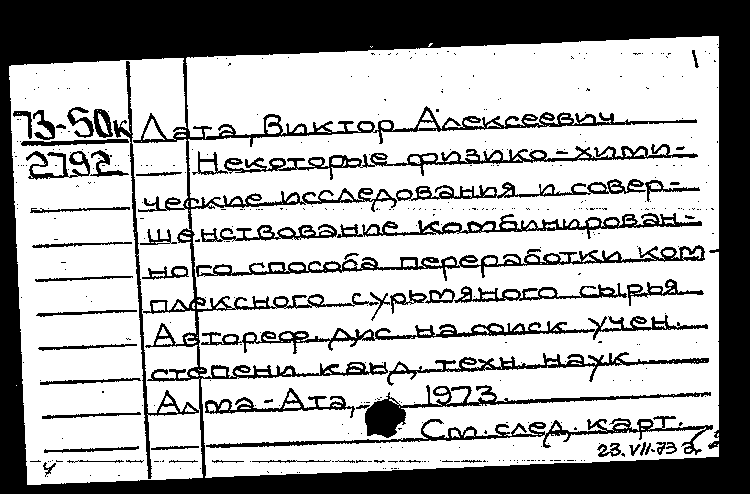 1
73-50к Лата, Виктор Алексеевич
2792 Некоторые физико-хими-
ческие исследования и совер-
шенствование комбинирован-
ного способа переработки ком-
плексного сурьмяного сырья
Автореф. дис на соиск учен.
степени канд. техн. наук
Алма-Ата, 1973.
См. след. карт.
23.VII.73
4